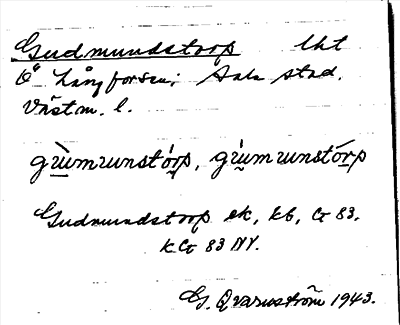 Gudmundstorp lht
Ö Långforsen; Sala stad.
Västm. l.
gùumunstórp, gùumunstórp
Gudmundstorp ek, kb, Ct 83.
k Ct 83 NV.
G. Qvarnström 1943.